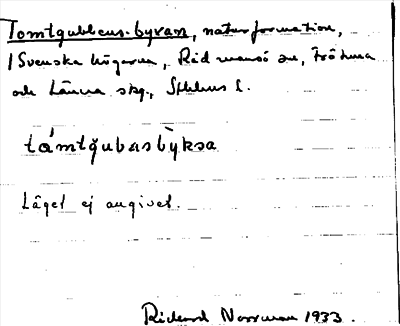 Tomtgubbens byxan, naturformation,
Svenska högarna, Rådmansö sn, Frötuna
och Länna skg., Sthlms l.
tám̀tgubas bỳksa
Läget ej angivet.
Rickard Norrman 1933.